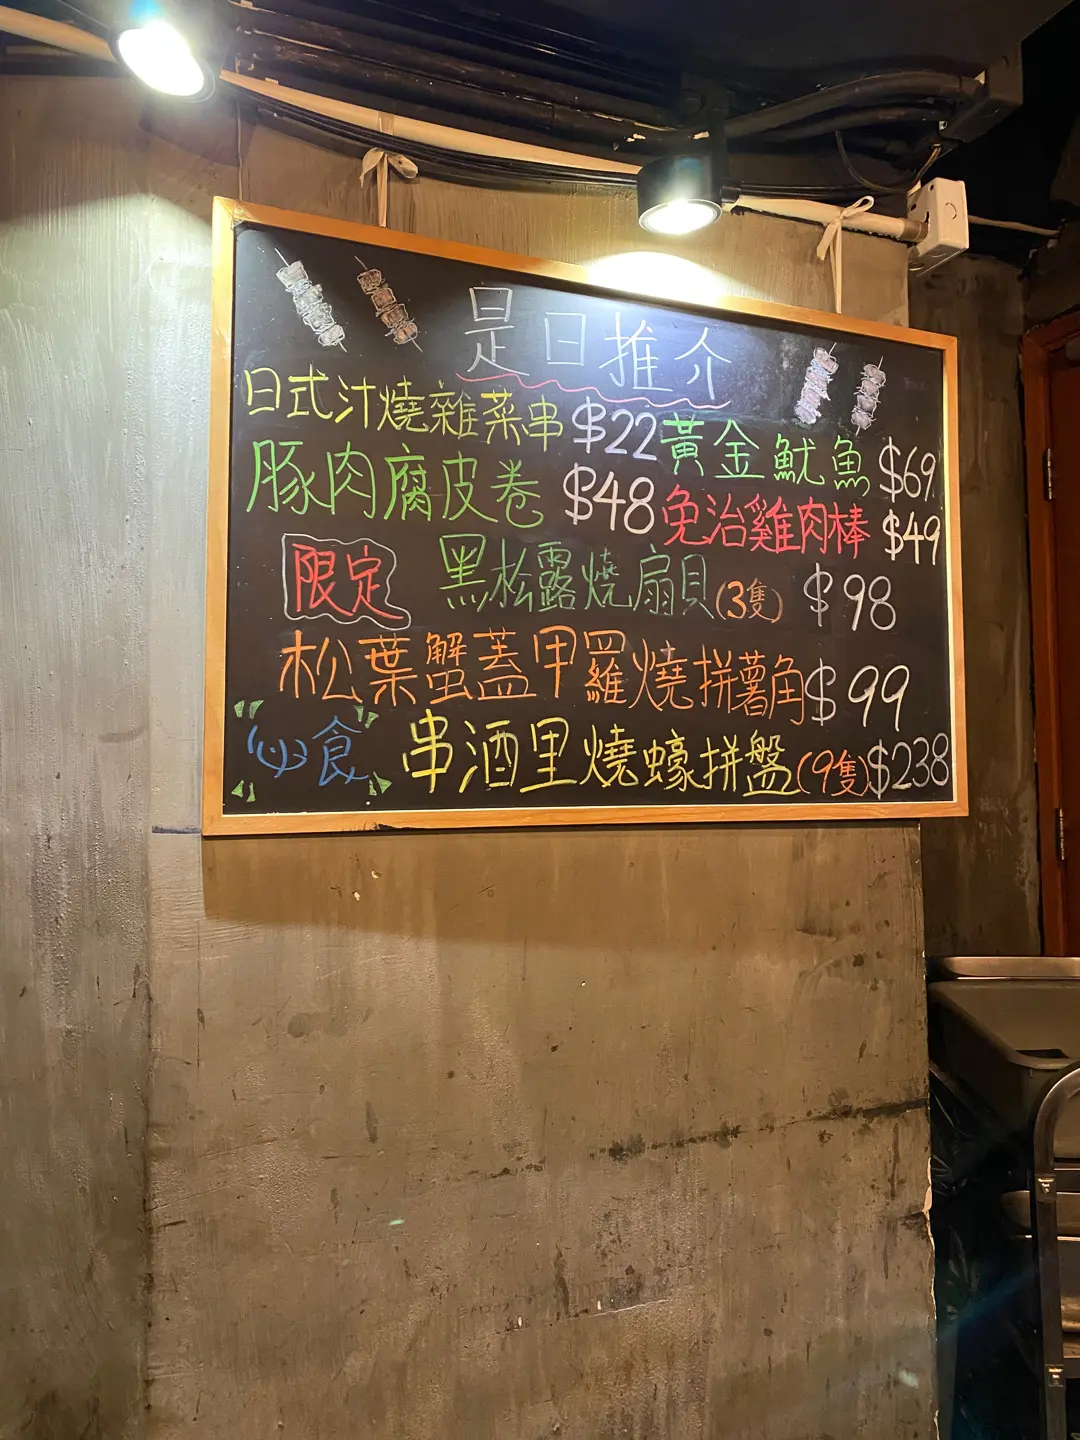 是日推介
日式汁燒雜菜串 $22 黃金魷魚 $69
豚肉腐皮卷 $48 免治雞肉棒 $49
限定 黑松露燒扇貝(3隻) $98
松葉蟹蓋甲羅燒拼薯角 $99
必食 串酒里燒蠔拼盤(9隻) $238